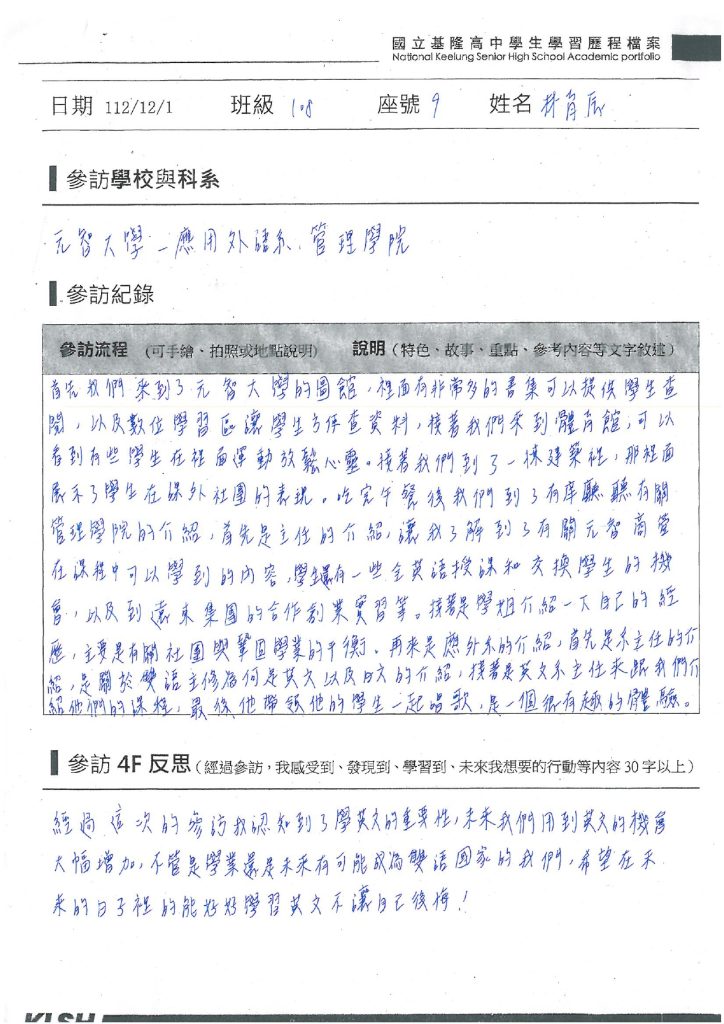 國立基隆高中學生學習歷程檔案
National Keelung Senior High School Academic portfolio
日期 112/12/1 班級 108 座號 9 姓名 林育辰
參訪學校與科系
元智大學-應用外語系、管理學院
參訪紀錄
參訪流程 (可手繪、拍照或地點說明) 說明(特色、故事、重點、參考內容等文字敘述)
首先我們來到了元智大學的圖館,裡面有非常多的書集可以提供學生查
閱,以及數位學習區讓學生方便查資料,接著我們來到體育館,可以
看到有些學生在裡面運動放鬆心靈。接著我們到了一棟建築裡,那裡面
展示了學生在課外社團的表現。吃完午餐後我們到了有庠廳聽有關
管理學院的介紹,首先是主任的介紹,讓我了解到了有關元智商管
在課程中可以學到的內容,學生還有一些全英語授課和交換學生的機
會,以及到遠東集團的合作創業實習等。接著是學姐介紹一下自己的經
歷,主要是有關社團與鞏固學業的平衡。再來是應外系的介紹,首先是系主任的介
紹,是關於雙語主修為何是英文以及日文的介紹,接著是英文系主任來跟我們介
紹他們的課程,最後他帶領他的學生一起唱歌,是一個很有趣的體驗。
參訪 4F 反思(經過參訪,我感受到、發現到、學習到、未來我想要的行動等內容 30 字以上)
經過這次的參訪我認知到了學英文的重要性,未來我們用到英文的機會
大幅增加,不管是學業還是未來有可能成為雙語國家的我們,希望在未
來的日子裡的能好好學習英文不讓自己後悔!
KLSH